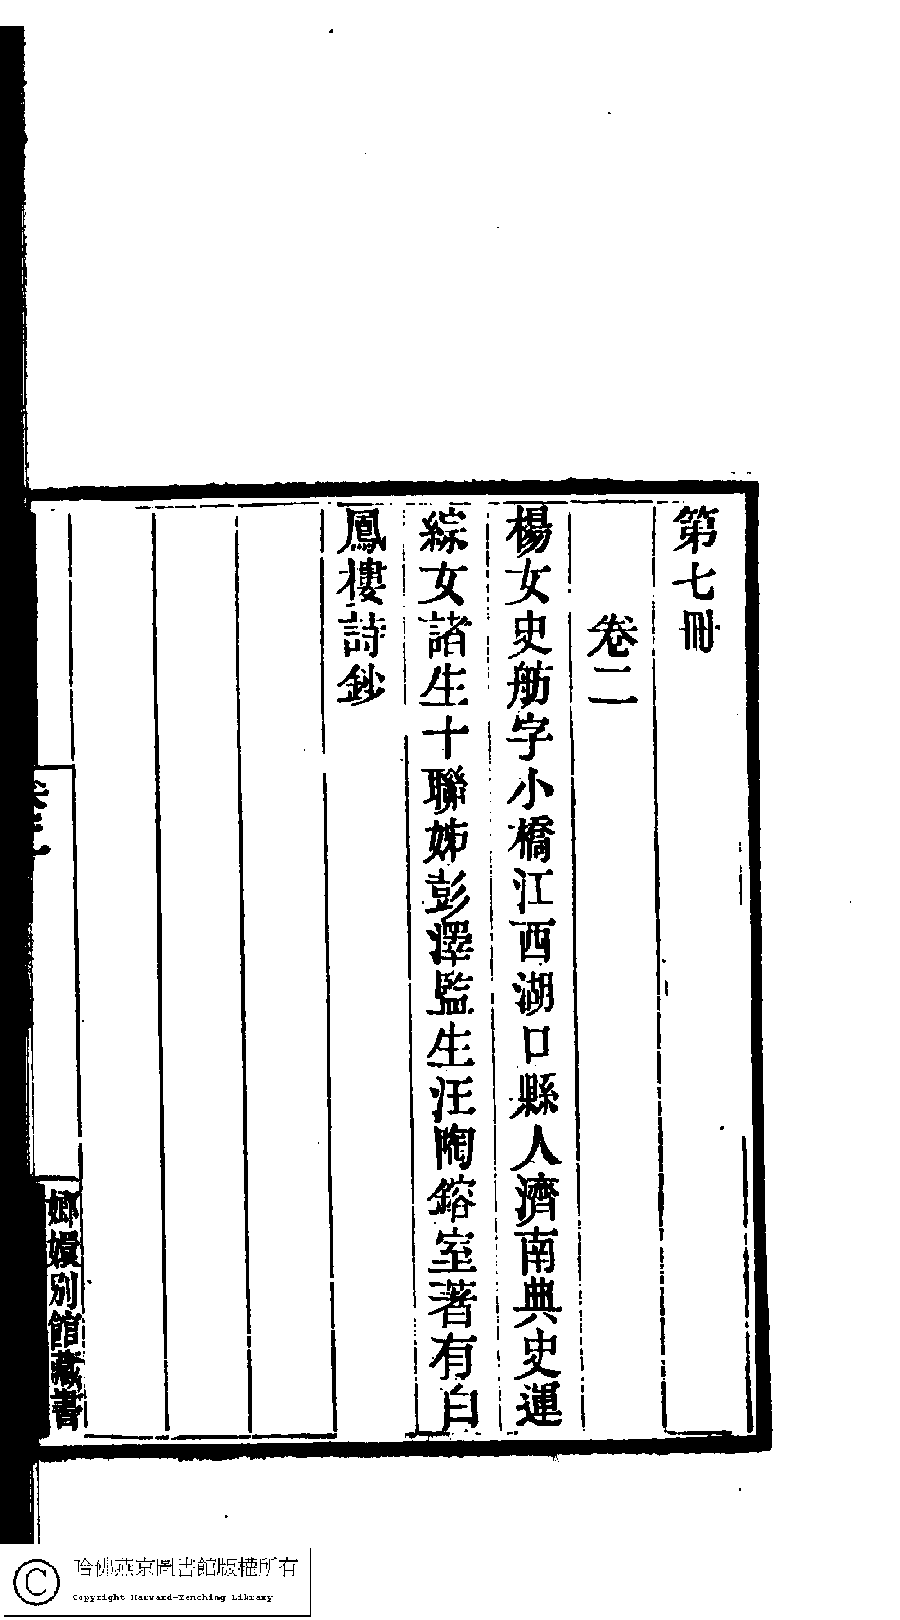 第七冊
卷二
楊女史舫字小橋江西湖口縣人濟南典史運
綜女諸生十聯姊彭澤監生汪陶鎔室著有白
鳳樓詩鈔
嫏嬛別館藏書
哈佛燕京圖書館版權所有
Copyright Harvard-Yenching Library